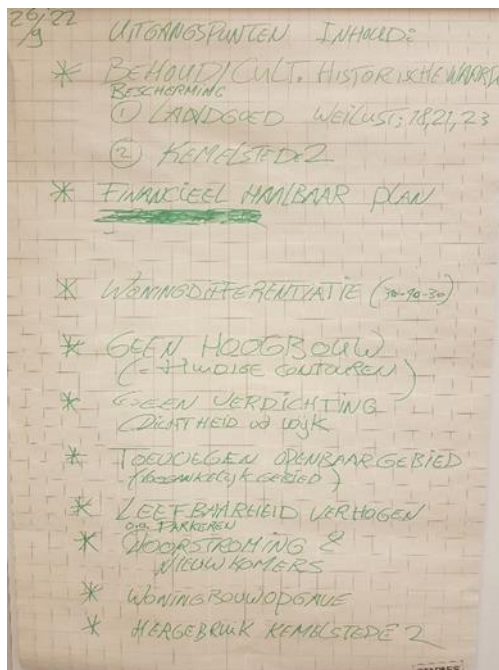 26/9 '22
UITGANGSPUNTEN INHOUD:
* BEHOUD/CULT. HISTORISCHE WAARD
BESCHERMING
① LANDGOED WEILUST; 18,21,23
② KEMELSTEDE 2
* FINANCIEEL HAALBAAR PLAN
* WONINGDIFFERENTIATIE (30-40-30)
* GEEN HOOGBOUW
(→ HUIDIGE CONTOUREN)
* GEEN VERDICHTING
DICHTHEID vd WIJK
* TOEVOEGEN OPENBAAR GEBIED
(TOEGANKELIJK GEBIED)
* LEEFBAARHEID VERHOGEN
o.a. PARKEREN
* DOORSTROMING &
NIEUWKOMERS
* WONINGBOUWOPGAVE
* HERGEBRUIK KEMELSTEDE 2